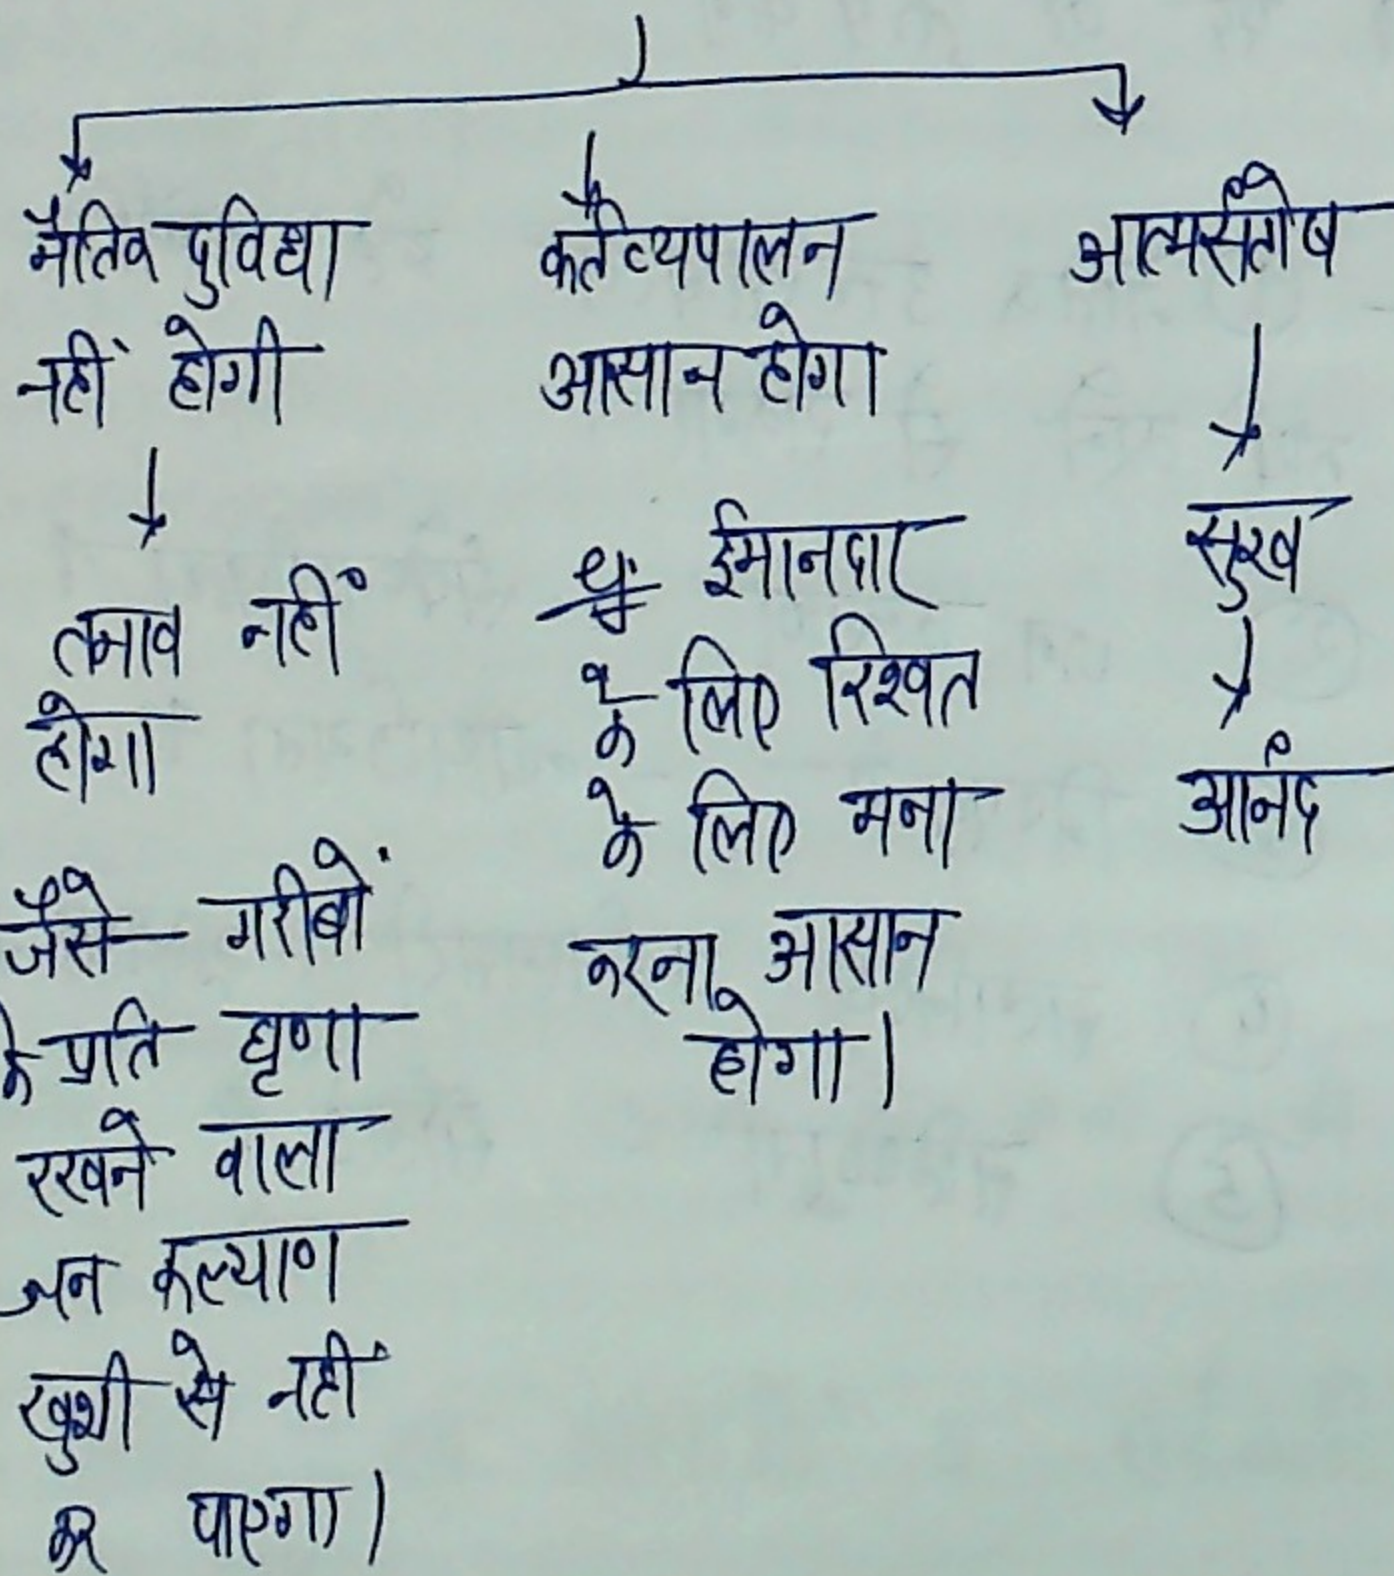 नैतिक दुविधा
नहीं होगी
तनाव नहीं
होगा
जैसे- गरीबों
के प्रति घृणा
रखने वाला
जन कल्याण
खुशी से नहीं
कर पाएगा।
कर्तव्यपालन
आसान होगा
ईमानदार
के लिए रिश्वत
के लिए मना
करना आसान
होगा।
आत्मसंतोष
सुख
आनंद